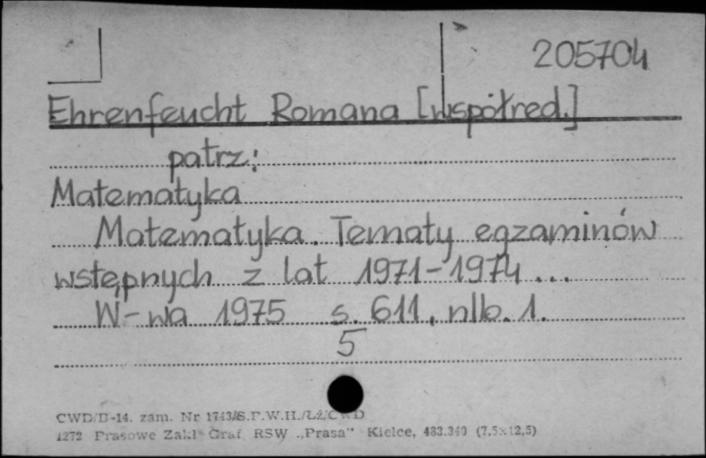 205704
Ehrenfeucht Romana [współred.]
patrz:
Matematyka
Matematyka. Tematy egzaminów
wstępnych z lat 1971-1974 ...
W-wa 1975 s. 611, nlb. 1.
5
CWD/D-14. zam. Nr
1272 Prasowe Zakł. Graf. RSW „Prasa” Kielce, 483.340 (7,5x12,5)